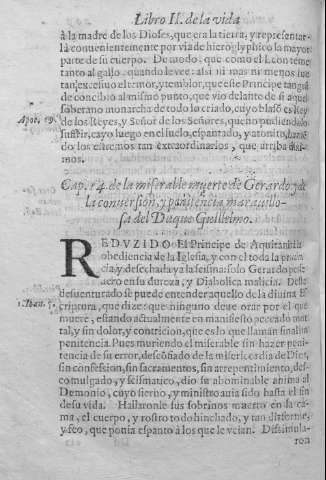 Libro II. de la vida
à la madre de los Dioses, que era la tierra, y representar-
la conuenientemente por via de hieroglyphico la mayor
parte de su cuerpo. De modo, que como el Leon teme
tanto al gallo, quando le vee: assi ni mas ni menos fue
tan excessiuo el temor, y temblor, que este Principe tangã
de concibio al mismo punto, que vio delante de si aquel
soberano monarcha de todo lo criado, cuyo blasõ es Rey
Apoc. 19. de los Reyes, y Señor de los Señores, que no pudiendolo
sufrir, cayo luego en el suelo, espantado, y atonito, haziẽ
do los estremos tan extraordinarios, que arriba dixi-
mos.
Cap. 14. de la miserable muerte de Gerardo, y de
la conuersion, y penitencia marauillo-
sa del Duque Guillelmo.
REDVZIDO El Principe de Aquitania a la
obediencia de la Iglesia, y con el toda la prouin
cia y desechada ya la scisma: solo Gerardo perse
uero en su dureza, y Diabolica malicia. Deste
desuenturado se puede entender aquello de la diuina Es
1. Ioan. 5. criptura, que dize: que ninguno deue orar por el que
muere, estando actualmente en manifiesto peccado mor
tal, y sin dolor, y contricion, que es lo que llaman final in
penitencia. Pues muriendo el miserable sin hazer peni-
tencia de su error, desconfiado de la misericordia de Dios,
sin confession, sin sacramentos, sin arrepentimiento, des-
comulgado, y scismatico, dio su abominable anima al
Demonio, cuyo sieruo, y ministro auia sido hasta el fin
de su vida. Hallaronle sus sobrinos muerto en la ca-
ma, el cuerpo, y rostro todo hinchado, y tan disforme,
y feo, que ponia espanto à los que le veian. Dissimula-
ron